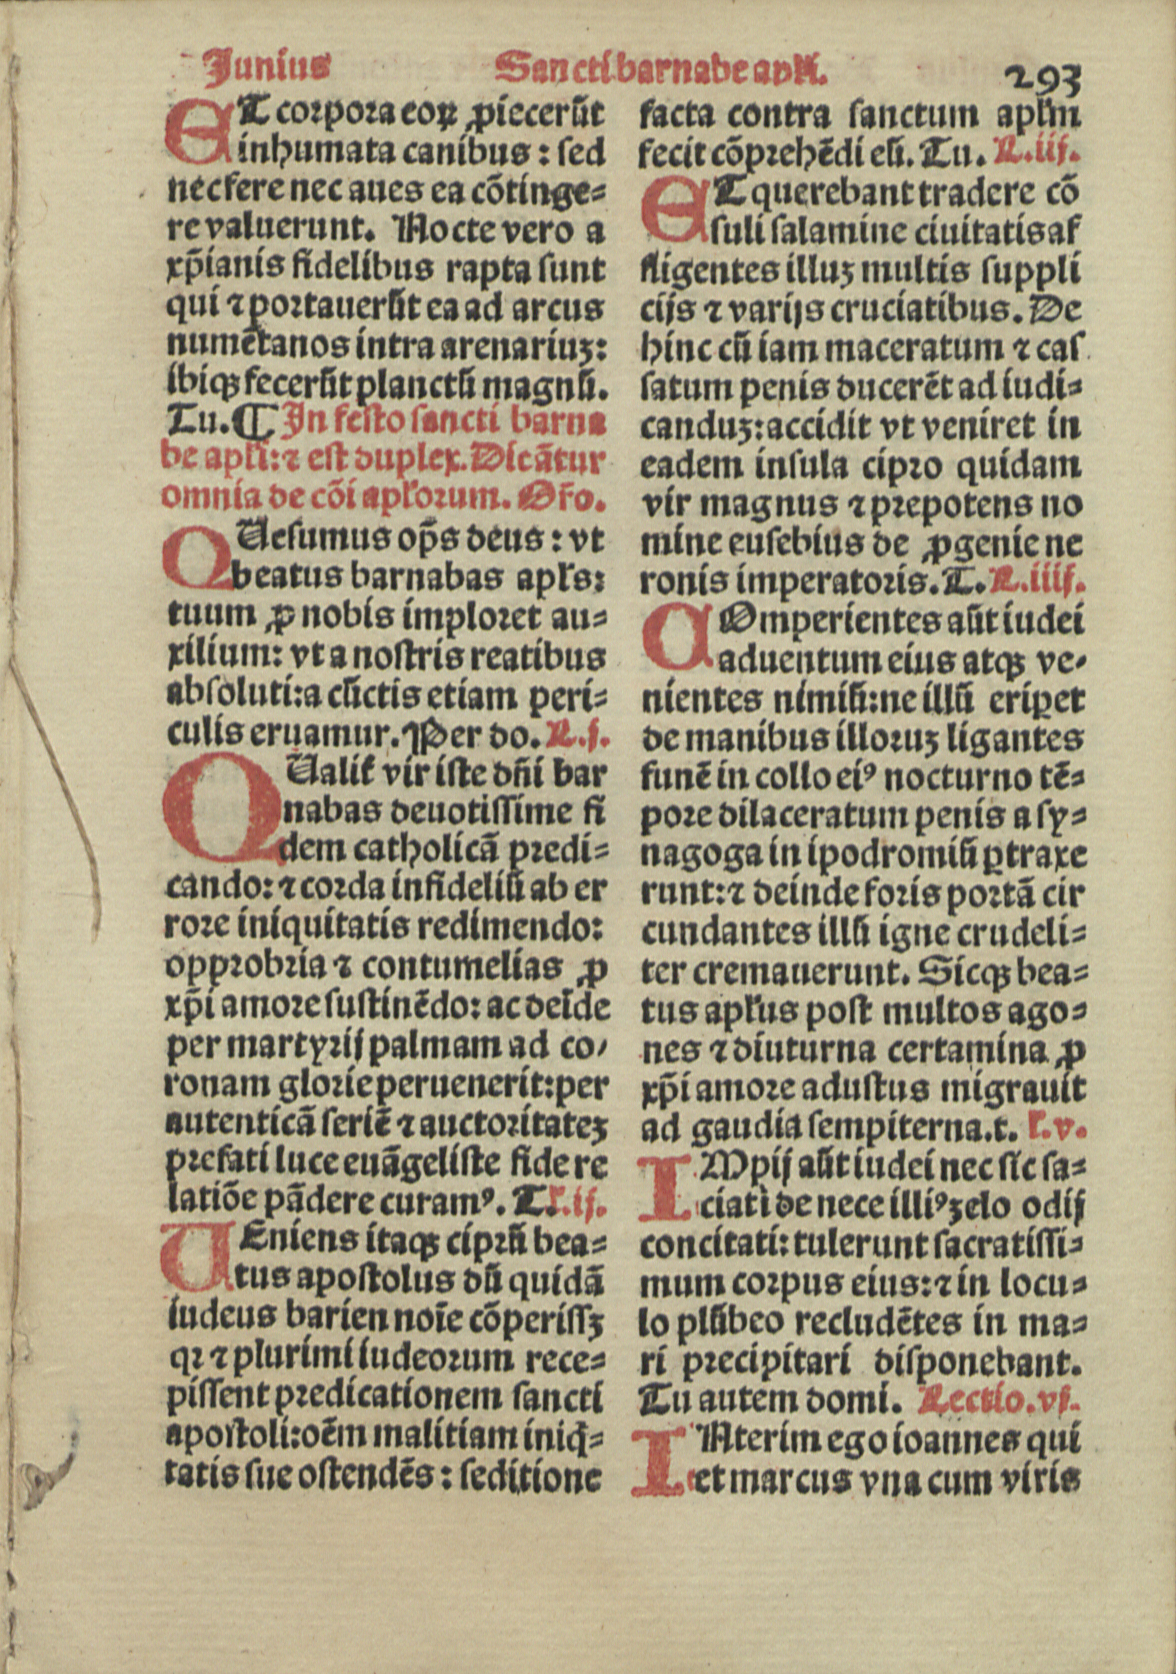 Junius Sancti barnabe apłi. 293
ET corpora eoꝝ ꝓiecerūt
inhumata canibus : sed
nec fere nec aues ea cōtinge⸗
re valuerunt. Nocte vero a
xp̄ianis fidelibus rapta sunt
qui ⁊ portauerūt ea ad arcus
numētanos intra arenariuꝫ:
ibiqꝫ fecerūt planctū magnū.
Tu. ¶ In festo sancti barna
be apłi: ⁊ est duplex. Dicātur
omnia de cōi apłorum. Oro.
QUesumus op̄s deus : vt
beatus barnabas apłs:
tuum ꝓ nobis imploret au⸗
xilium: vt a nostris reatibus
absoluti: a cūctis etiam peri⸗
culis eruamur. Per do. L.j.
QUalił vir iste dn̄i bar
nabas deuotissime fi
dem catholicā predi⸗
cando: ⁊ corda infideliū ab er
rore iniquitatis redimendo:
opprobria ⁊ contumelias ꝓ
xp̄i amore sustinēdo: ac deīde
per martyrij palmam ad co/
ronam glorie peruenerit: per
autenticā seriē ⁊ auctoritateꝫ
prefati luce euāgeliste fide re
latiōe pādere curamꝰ. T. ł.ij.
UEniens itaqꝫ ciprū bea⸗
tus apostolus dū quidā
iudeus barien noīe cōperissꝫ
qꝛ ⁊ plurimi iudeorum rece⸗
pissent predicationem sancti
apostoli: oēm malitiam iniq̄⸗
tatis sue ostendēs : seditione
facta contra sanctum apłm
fecit cōprehēdi eū. Tu. L.iij.
ET querebant tradere cō
suli salamine ciuitatis af
fligentes illuꝫ multis suppli
cijs ⁊ varijs cruciatibus. De
hinc cū iam maceratum ⁊ cas
satum penis ducerēt ad iudi⸗
canduꝫ: accidit vt veniret in
eadem insula cipro quidam
vir magnus ⁊ prepotens no
mine eusebius de ꝓgenie ne
ronis imperatoris. T. L.iiij.
COmperientes aūt iudei
aduentum eius atqꝫ ve⸗
nientes nimiū: ne illū eriꝑet
de manibus illoruꝫ ligantes
funē in collo eiꝰ nocturno tē⸗
pore dilaceratum penis a sy⸗
nagoga in ipodromiū ꝑtraxe
runt: ⁊ deinde foris portā cir
cundantes illū igne crudeli⸗
ter cremauerunt. Sicqꝫ bea⸗
tus apłus post multos ago⸗
nes ⁊ diuturna certamina ꝓ
xp̄i amore adustus migrauit
ad gaudia sempiterna. t. ł.v.
IMpij aūt iudei nec sic sa⸗
ciati de nece illiꝰ zelo odij
concitati: tulerunt sacratissi⸗
mum corpus eius: ⁊ in locu⸗
lo plūbeo recludētes in ma⸗
ri precipitari disponebant.
Tu autem domi. Lectio.vj.
INterim ego ioannes qui
et marcus vna cum viris